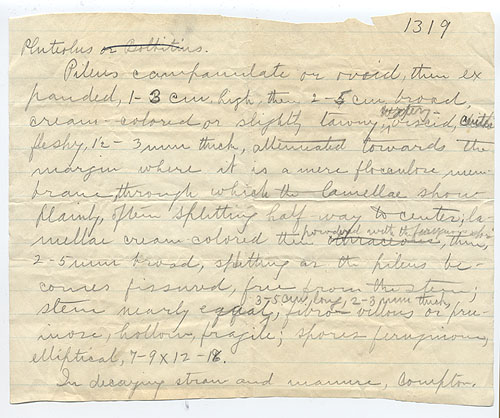 1319
Pluteolus or Bolbitius.
Pileus campanulate or ovoid, then ex
panded, 1-3 cm. high, then 2-5 cm. broad,
cream-colored or slightly tawny, viscid, center
fleshy, 1½-3 mm thick, attenuated towards the
margin where it is a mere flocculose mem-
brane through which the lamellae show
plainly, often splitting half way to center, la-
powdered with the ferruginous
mellae cream-colored then thin,
2-5 mm broad, splitting as the pileus be-
comes fissured, free from the stem;
3-5 cm. long, 2-3 mm thick,
stem nearly equal, fibro villous or prui
inose, hollow, fragile; spores ferruginous,
elliptical, 7-9 x 12-18.
In decaying straw and manure, Compton.